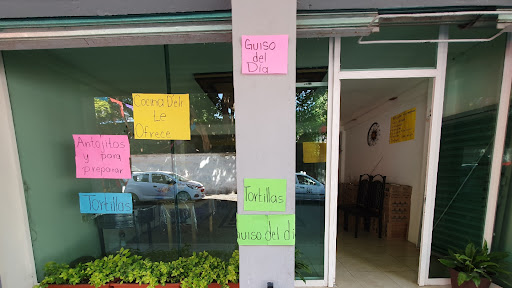 Guiso
del
Día
Cocina Deli
Le
Ofrece
Antojitos
y para
preparar
Tortillas
Tortillas
Guiso del dí